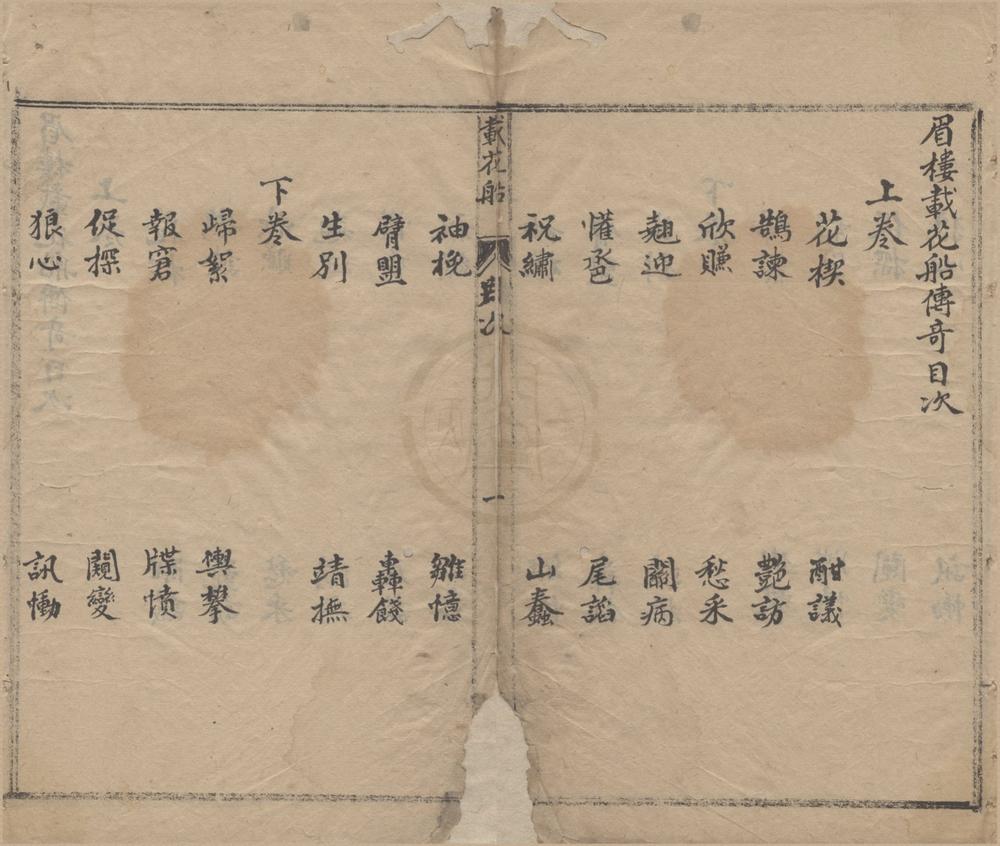 眉樓載花船傳奇目次
上卷
花楔 酣議
鵲諫 艷訪
欣賺 愁采
翹迎 闈病
懽巹 尾謟
祝繡 山蠢
載花船 目次 一
袖挽 雛憶
臂盟 轟餞
生別 靖撫
下卷
歸絮 輿攀
報窘 牒憤
促探 鬩變
狼心 訊慟